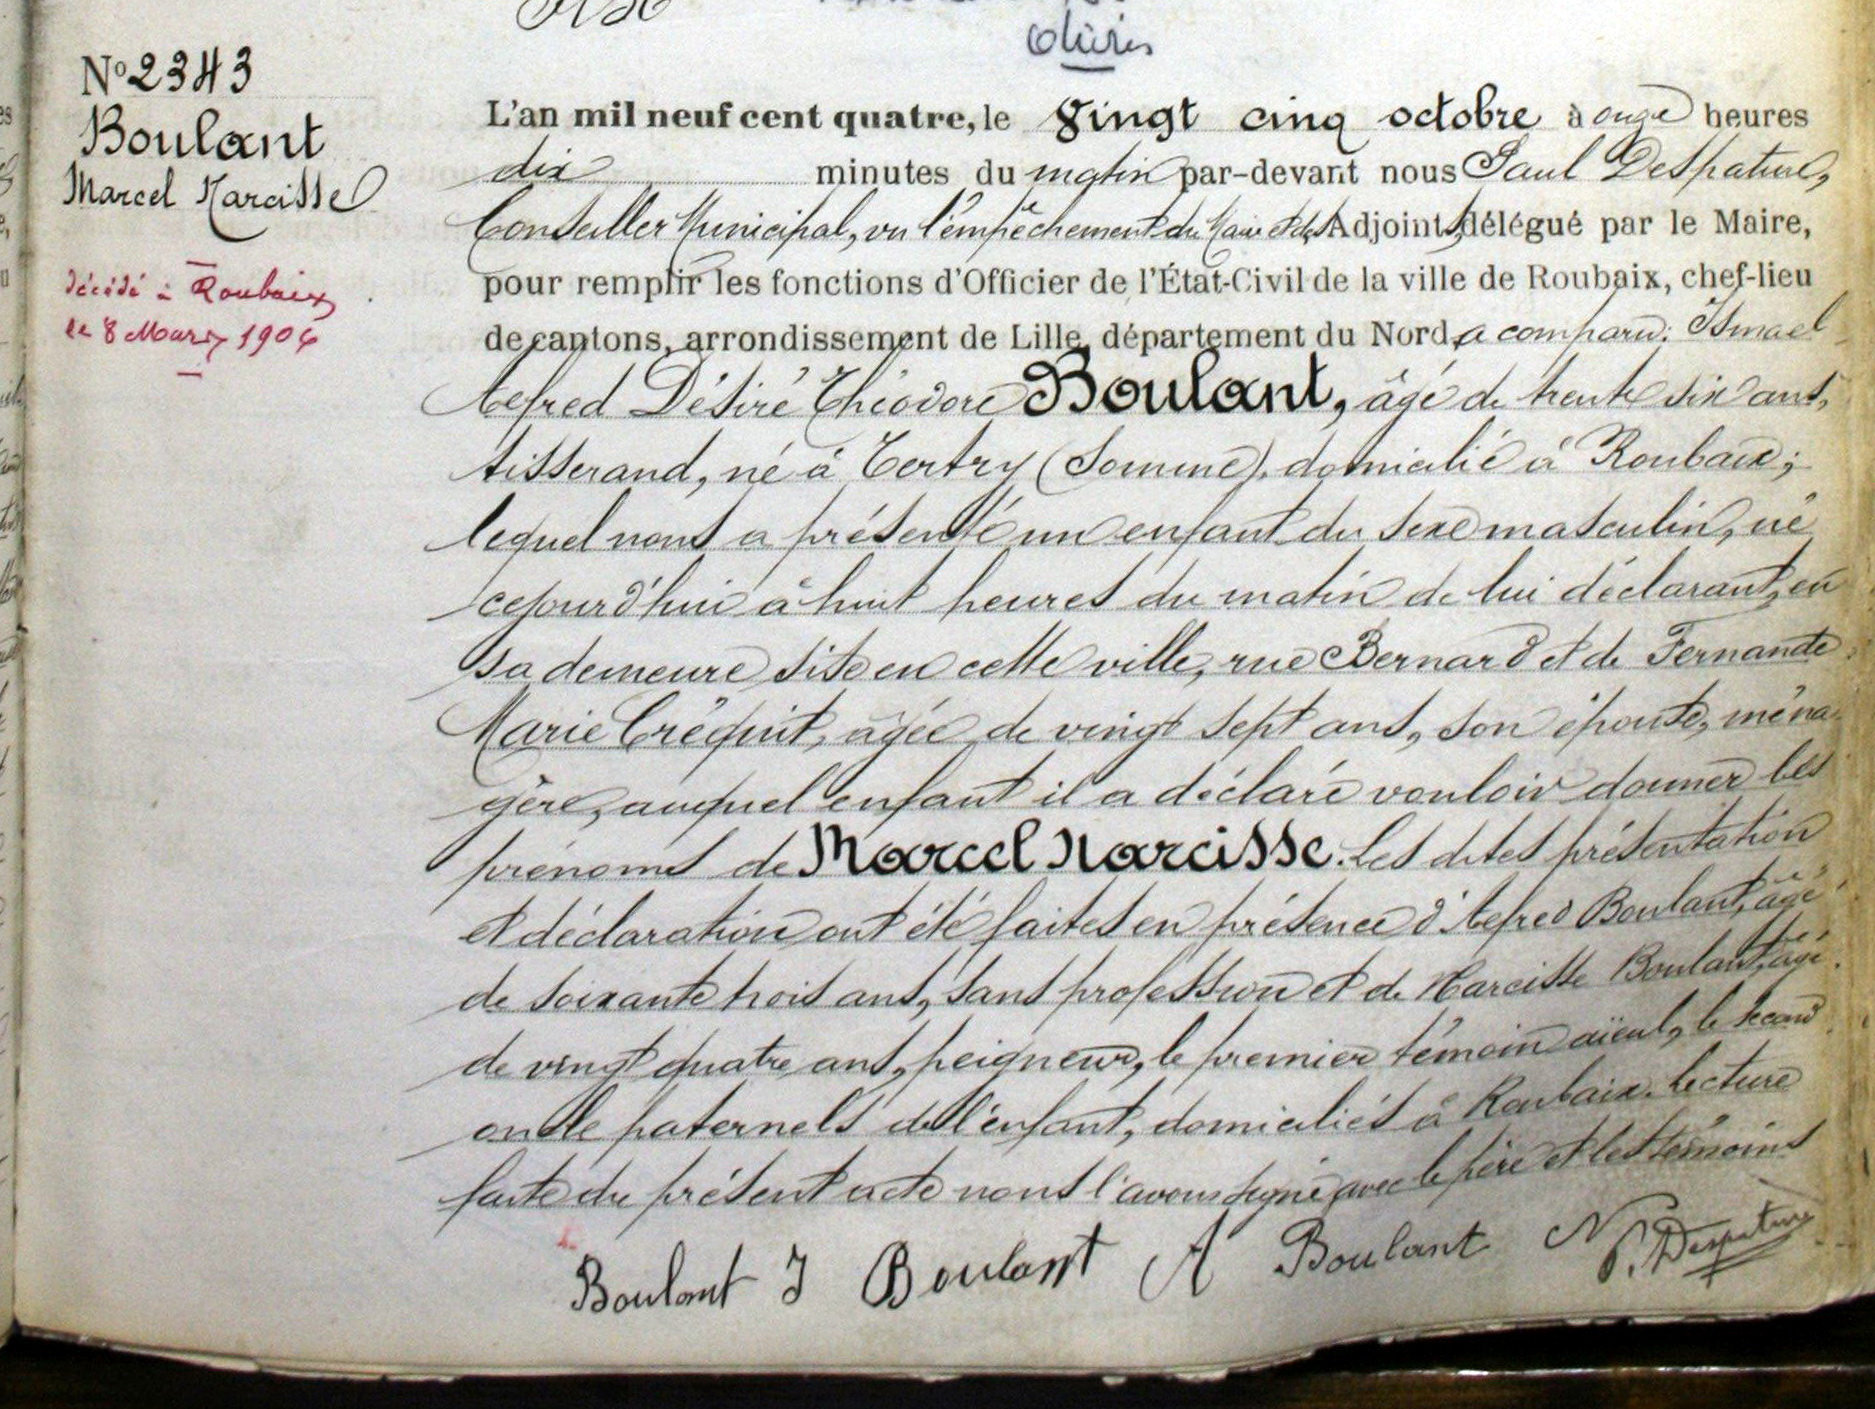 Olivier
N° 2343
Boulant
Marcel Narcisse
décédé à Roubaix
le 8 Mars 1906
L'an mil neuf cent quatre, le Vingt cinq octobre à onze heures
dix minutes du matin par-devant nous Paul Despature,
Conseiller Municipal, vu l'empêchement du Maire et des Adjoints, délégué par le Maire,
pour remplir les fonctions d'Officier de l'État-Civil de la ville de Roubaix, chef-lieu
de cantons, arrondissement de Lille, département du Nord, a comparu: Ismael
Alfred Désiré Théodore Boulant, âgé de trente six ans,
tisserand, né à Tertry (Somme), domicilié à Roubaix;
lequel nous a présenté un enfant du sexe masculin, né
cejourd'hui à huit heures du matin de lui déclarant, en
sa demeure sise en cette ville, rue Bernard et de Fernande
Marie Créquit, âgée de vingt sept ans, son épouse, ména-
gère, auquel enfant il a déclaré vouloir donner les
prénoms de Marcel Narcisse. Les dites présentation
et déclaration ont été faites en présence d'Alfred Boulant, âgé
de soixante trois ans, sans profession et de Narcisse Boulant, âgé
de vingt quatre ans, peigneur, le premier témoin aïeul, le second
oncle paternels de l'enfant, domiciliés à Roubaix. Lecture
faite du présent acte nous l'avons signé avec le père et les témoins
Boulant I Boulant A Boulant N
P. Despature